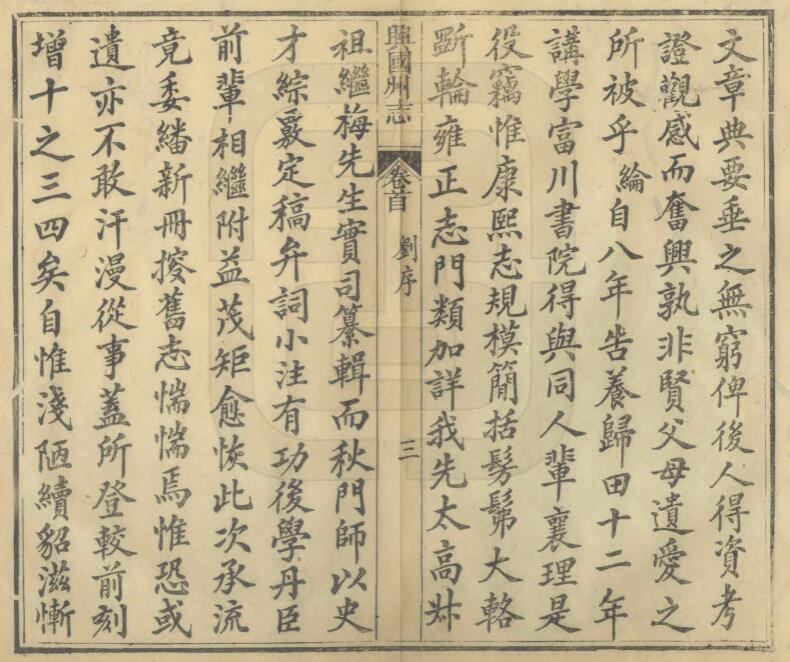 文章典要垂之無窮俾後人得資考
證觀感而奮興孰非賢父母遺愛之
所被乎綸自八年告養歸田十二年
講學富川書院得與同人輩襄理是
役竊惟康熙志規模簡括髣髴大輅
斲輪雍正志門類加詳我先太高叔
興國州志
卷首
劉序
三
祖繼梅先生實司纂輯而秋門師以史
才綜覈定稿弁詞小注有功後學丹臣
前輩相繼附益茂矩愈恢此次承流
竟委繙新冊按舊志惴惴焉惟恐或
遺亦不敢汗漫從事蓋所登較前刻
增十之三四矣自惟淺陋續貂滋慚